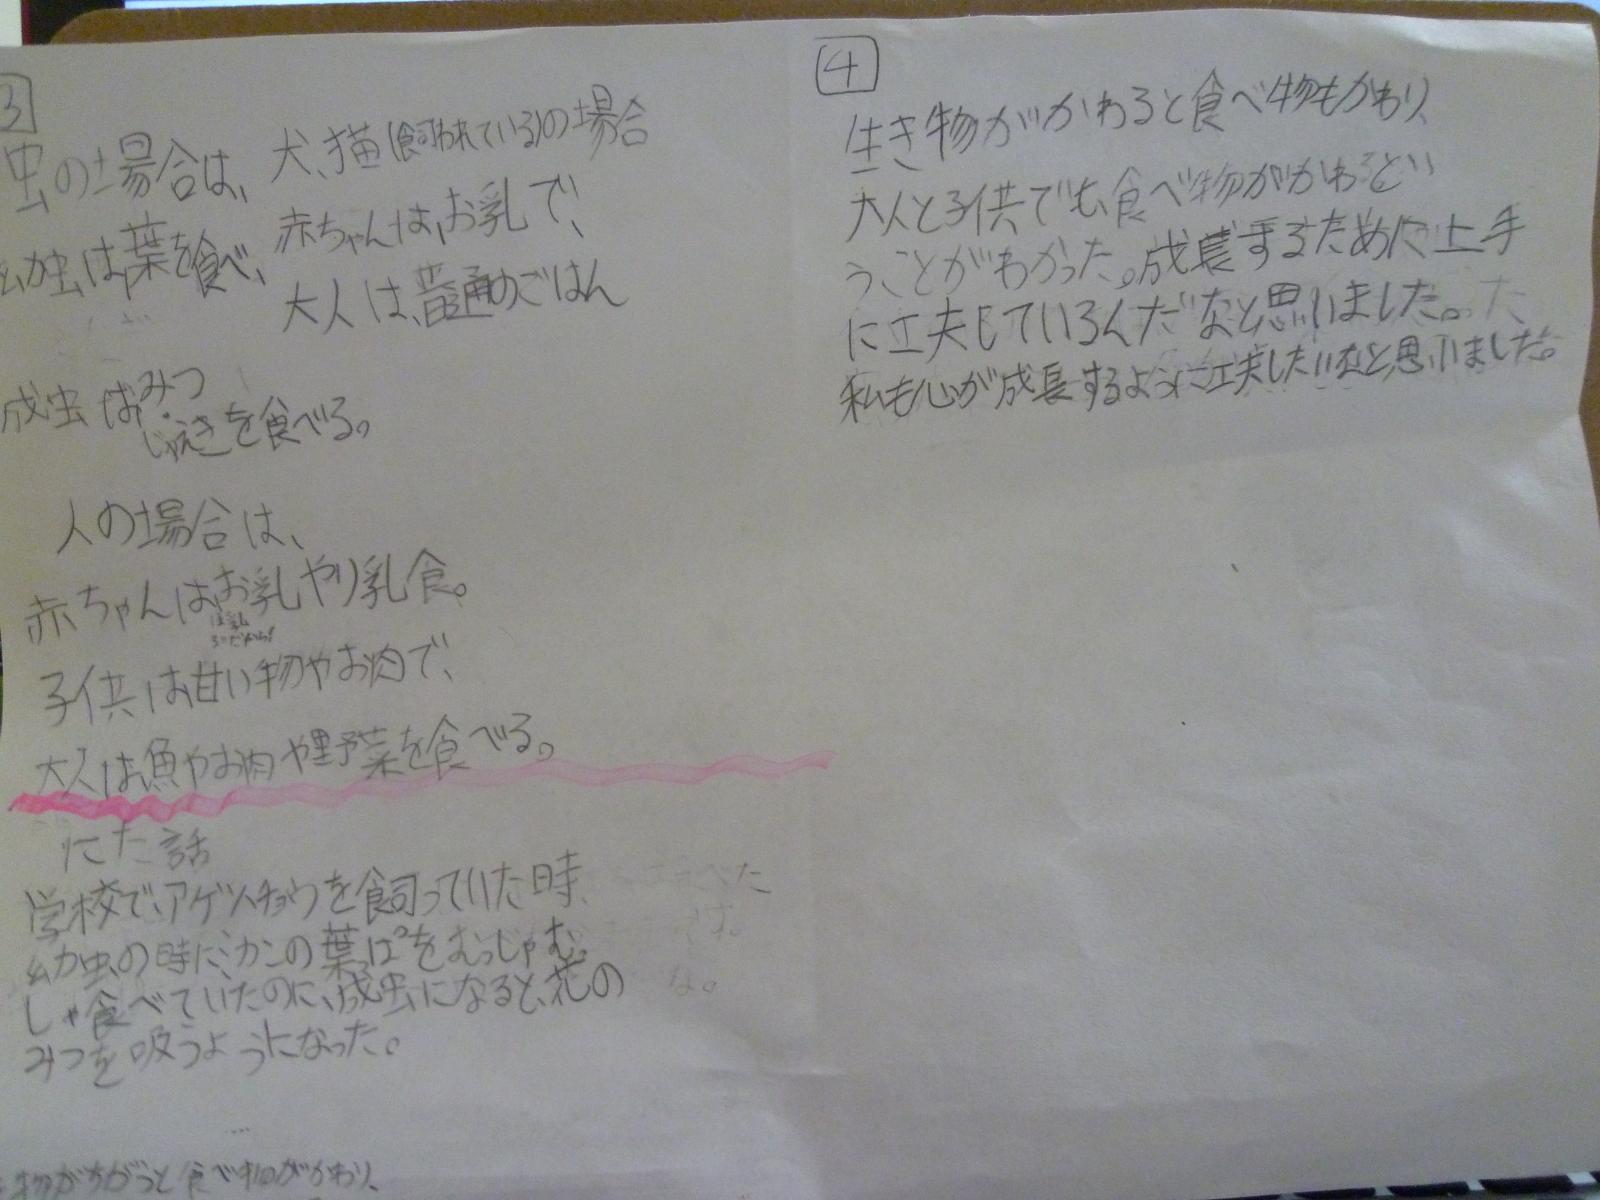 3
虫の場合は、
幼虫は葉を食べ、
成虫はみつ
じゅえきを食べる。
犬、猫(飼われている)の場合
赤ちゃんは、お乳で、
大人は、普通のごはん
人の場合は、
赤ちゃんはお乳やり乳食。
ほ乳
るいだから!
子供は甘い物やお肉で、
大人は、魚やお肉や野菜を食べる。
にた話
学校で、アゲハチョウを飼っていた時、
幼虫の時にミカンの葉っぱをむっしゃむっ
しゃ食べていたのに、成虫になると、花の
みつを吸うようになった。
物がちがうと食べ物がかわり、
4
生き物がかわると食べ物もかわり、
大人と子供でも、食べ物がかわるとい
うことがわかった。成長するために上手
に工夫しているんだなと思いました。
私も心が成長するように工夫したいなと思いました。